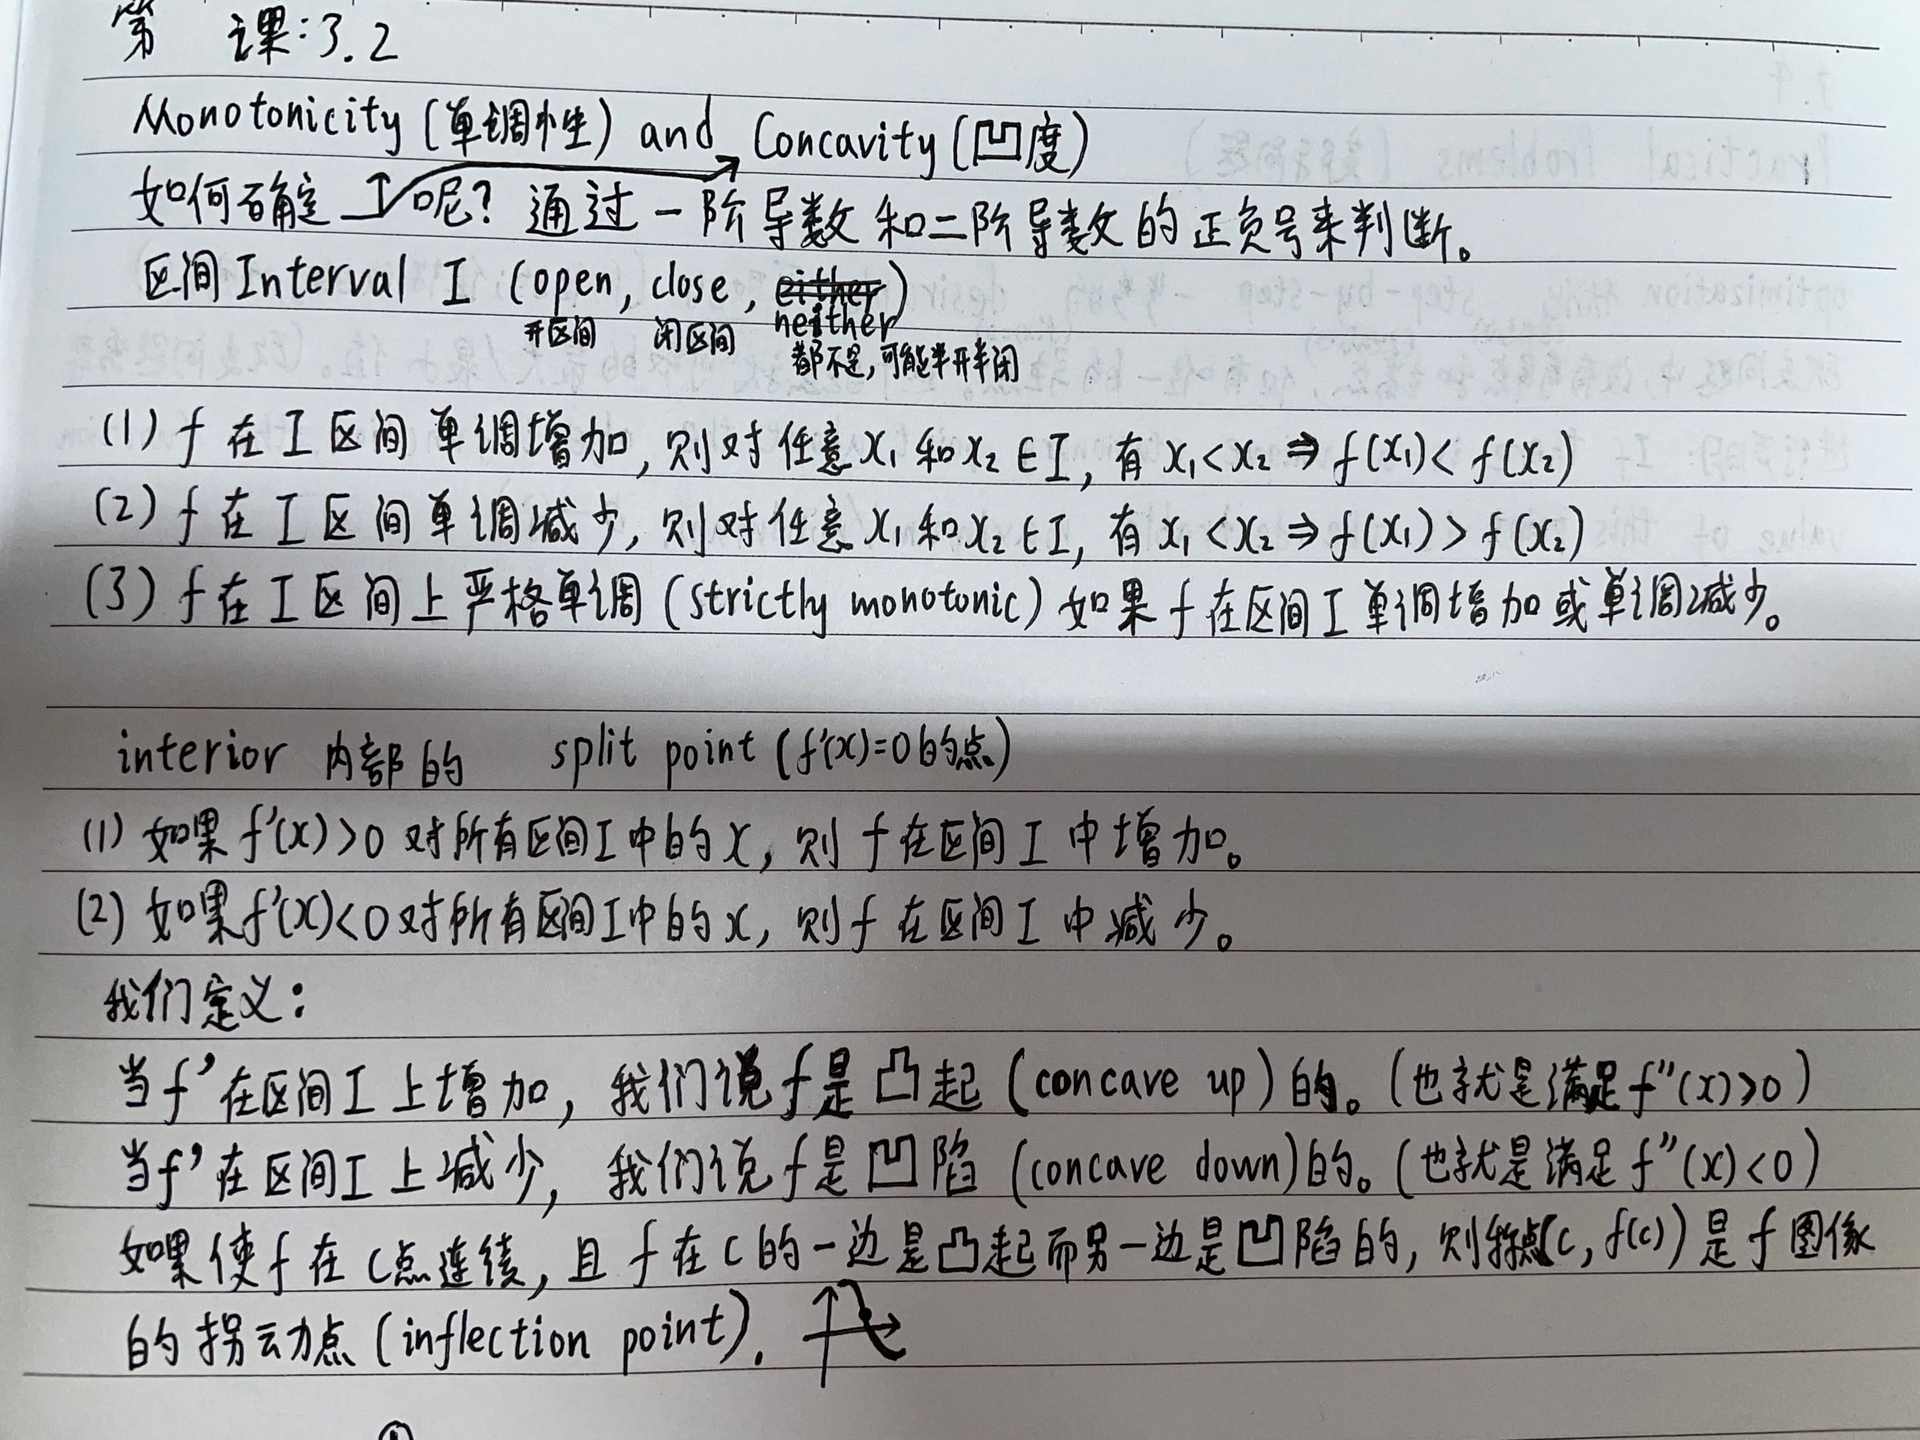 第 课:3.2
Monotonicity (单调性) and Concavity (凹度)
如何确定 呢? 通过一阶导数和二阶导数的正负号来判断。
区间 Interval I (open, close, either)
neither
开区间 闭区间
都不是,可能半开半闭
(1) f 在 I 区间单调增加,则对任意x₁和x₂∈I,有 x₁<x₂⇒f(x₁)<f(x₂)
(2) f 在 I 区间单调减少,则对任意x₁和x₂∈I,有 x₁<x₂⇒f(x₁)>f(x₂)
(3) f 在 I 区间上严格单调 (strictly monotonic) 如果 f 在区间 I 单调增加或单调减少。
interior 内部的 split point (f'(x)=0的点)
(1) 如果 f'(x)>0 对所有区间I中的 x, 则 f 在区间 I 中增加。
(2) 如果f'(x)<0对所有区间I中的x, 则 f 在区间 I 中减少。
我们定义:
当f'在区间I上增加, 我们说f是凸起 (concave up) 的。(也就是满足f''(x)>0)
当f'在区间I上减少, 我们说f是凹陷 (concave down)的。(也就是满足f''(x)<0)
如果使f在c点连续,且f在c的一边是凸起而另一边是凹陷的,则称点(c, f(c))是f图像
的拐动点(inflection point).